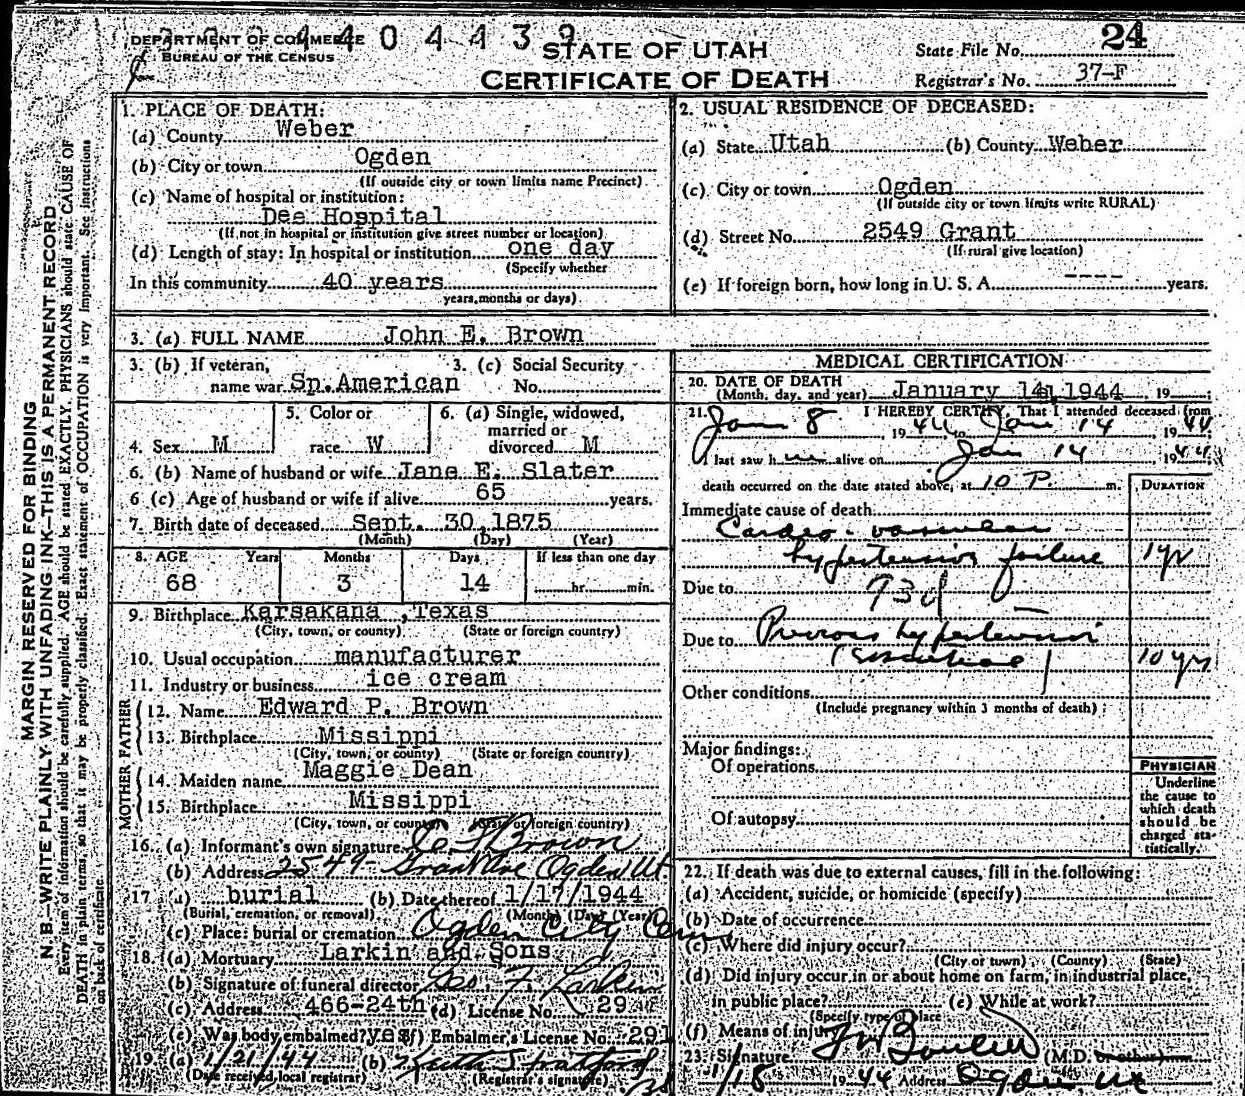 DEPARTMENT OF COMMERCE
BUREAU OF THE CENSUS
4404439
STATE OF UTAH
CERTIFICATE OF DEATH
State File No. 24
Registrar's No. 37-F
MARGIN RESERVED FOR BINDING
N B—WRITE PLAINLY WITH UNFADING INK—THIS IS A PERMANENT RECORD
Every item of information should be carefully supplied. AGE should be stated EXACTLY. PHYSICIANS should state CAUSE OF
DEATH in plain terms, so that it may be properly classified. Exact statement of OCCUPATION is very important. See instructions
on back of certificate
1. PLACE OF DEATH:
(a) County Weber
(b) City or town Ogden
(If outside city or town limits name Precinct)
(c) Name of hospital or institution:
Dee Hospital
(If not in hospital or institution give street number or location)
(d) Length of stay: In hospital or institution one day
(Specify whether
In this community 40 years
years, months or days)
2. USUAL RESIDENCE OF DECEASED:
(a) State Utah (b) County Weber
(c) City or town Ogden
(If outside city or town limits write RURAL)
(d) Street No. 2549 Grant
(If rural give location)
(e) If foreign born, how long in U. S. A. ---- years.
3. (a) FULL NAME John E. Brown
3. (b) If veteran, name war Sp. American
3. (c) Social Security No.
4. Sex M
5. Color or race W
6. (a) Single, widowed, married or divorced M
6. (b) Name of husband or wife Jane E. Slater
6 (c) Age of husband or wife if alive 65 years.
7. Birth date of deceased Sept. 30, 1875
(Month) (Day) (Year)
8. AGE Years Months Days If less than one day
68 3 14 hr. min.
9. Birthplace Karsakana, Texas
(City, town, or county) (State or foreign country)
10. Usual occupation manufacturer
11. Industry or business ice cream
FATHER
12. Name Edward P. Brown
13. Birthplace Missippi
(City, town, or county) (State or foreign country)
MOTHER
14. Maiden name Maggie Dean
15. Birthplace Missippi
(City, town, or county) (State or foreign country)
16. (a) Informant's own signature Brown
(b) Address 2549 Grant Ave Ogden Ut
17 (a) burial (b) Date thereof 1/17/1944
(Burial, cremation, or removal) (Month) (Day) (Year)
(c) Place: burial or cremation Ogden City Cem
18. (a) Mortuary Larkin and Sons
(b) Signature of funeral director Geo. F. Larkin
(c) Address 466-24th (d) License No. 29
(e) Was body embalmed? yes (f) Embalmer's License No. 291
19. (a) 1/21/44 (b)
(Date received local registrar) (Registrar's signature)
MEDICAL CERTIFICATION
20. DATE OF DEATH
(Month, day, and year) January 14, 1944, 19
21. I HEREBY CERTIFY, That I attended deceased from
Jan 8, 1944, to Jan 14 1944;
I last saw him alive on Jan 14 1944;
death occurred on the date stated above, at 10 P. m.
DURATION
Immediate cause of death
Cardio-vascular
hypertensive failure 1 yr
Due to 93d
Due to Previous hypertension
(essential) 10 yrs
Other conditions
(Include pregnancy within 3 months of death)
Major findings:
Of operations
Of autopsy
PHYSICIAN
Underline
the cause to
which death
should be
charged sta-
tistically.
22. If death was due to external causes, fill in the following:
(a) Accident, suicide, or homicide (specify)
(b) Date of occurrence
(c) Where did injury occur?
(City or town) (County) (State)
(d) Did injury occur in or about home on farm, in industrial place,
in public place? (e) While at work?
(Specify type of place
(f) Means of injury
23. Signature (M.D.
1/18 1944 Address Ogden Ut